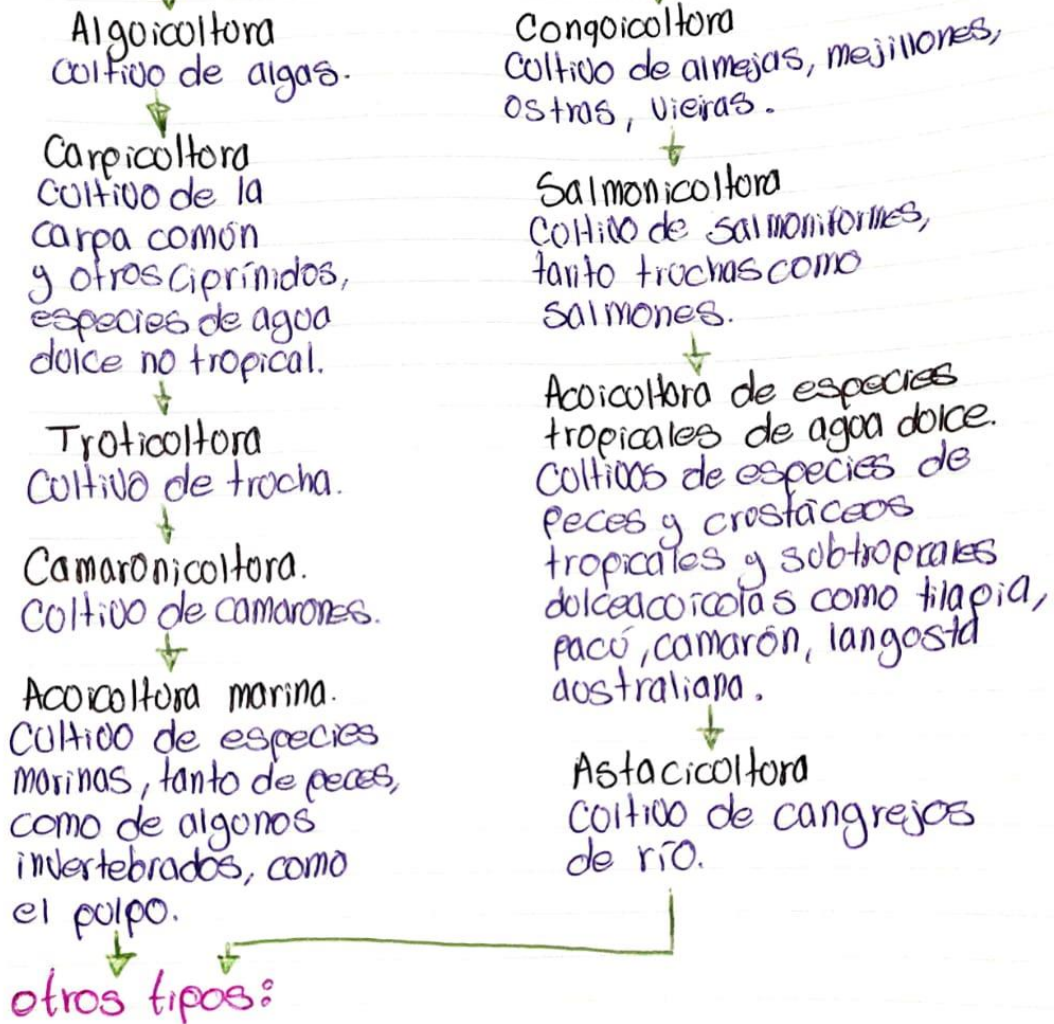 Alguicultura
Cultivo de algas.
Carpicultura
Cultivo de la
carpa común
y otros ciprínidos,
especies de agua
dulce no tropical.
Truticultura
Cultivo de trucha.
Camaronicultura.
Cultivo de camarones.
Acuicultura marina.
Cultivo de especies
marinas, tanto de peces,
como de algunos
invertebrados, como
el pulpo.
Conguicultura
Cultivo de almejas, mejillones,
ostras, vieiras.
Salmonicultura
Cultivo de salmoniformes,
tanto truchas como
salmones.
Acuicultura de especies
tropicales de agua dulce.
Cultivos de especies de
peces y crustáceos
tropicales y subtropicales
dulceacuícolas como tilapia,
pacú, camarón, langosta
australiana.
Astacicultura
Cultivo de cangrejos
de río.
otros tipos: